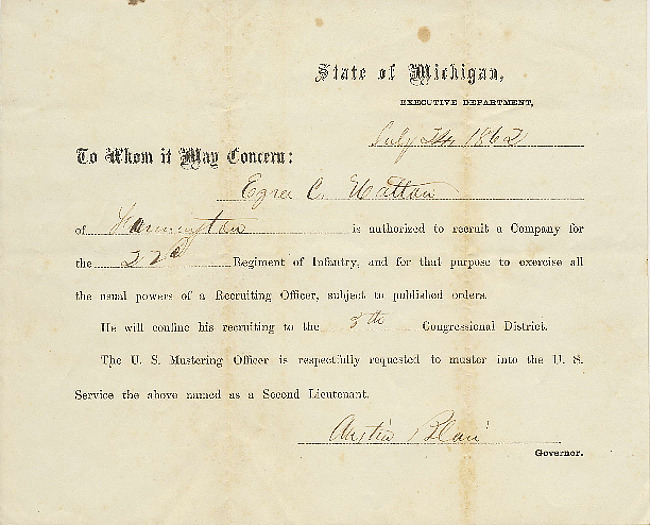 State of Michigan,
EXECUTIVE DEPARTMENT,
July 24, 1862
To Whom it May Concern:
Ezra C. Hatton
of Farmington is authorized to recruit a Company for
the 22d Regiment of Infantry, and for that purpose to exercise all
the usual powers of a Recruiting Officer, subject to published orders.
He will confine his recruiting to the 5th Congressional District.
The U. S. Mustering Officer is respectfully requested to muster into the U. S.
Service the above named as a Second Lieutenant.
Austin Blair
Governor.